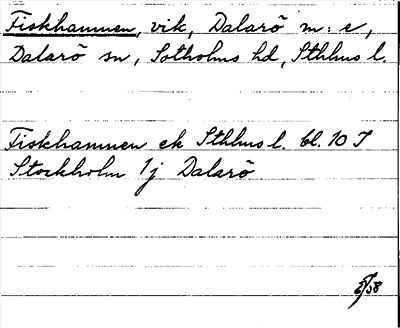 Fiskhamnen, vik, Dalarö m: e,
Dalarö sn, Sotholms hd, Sthlms l.
Fiskhamnen ek Sthlms l. bl. 10 I
Stockholm 1j Dalarö